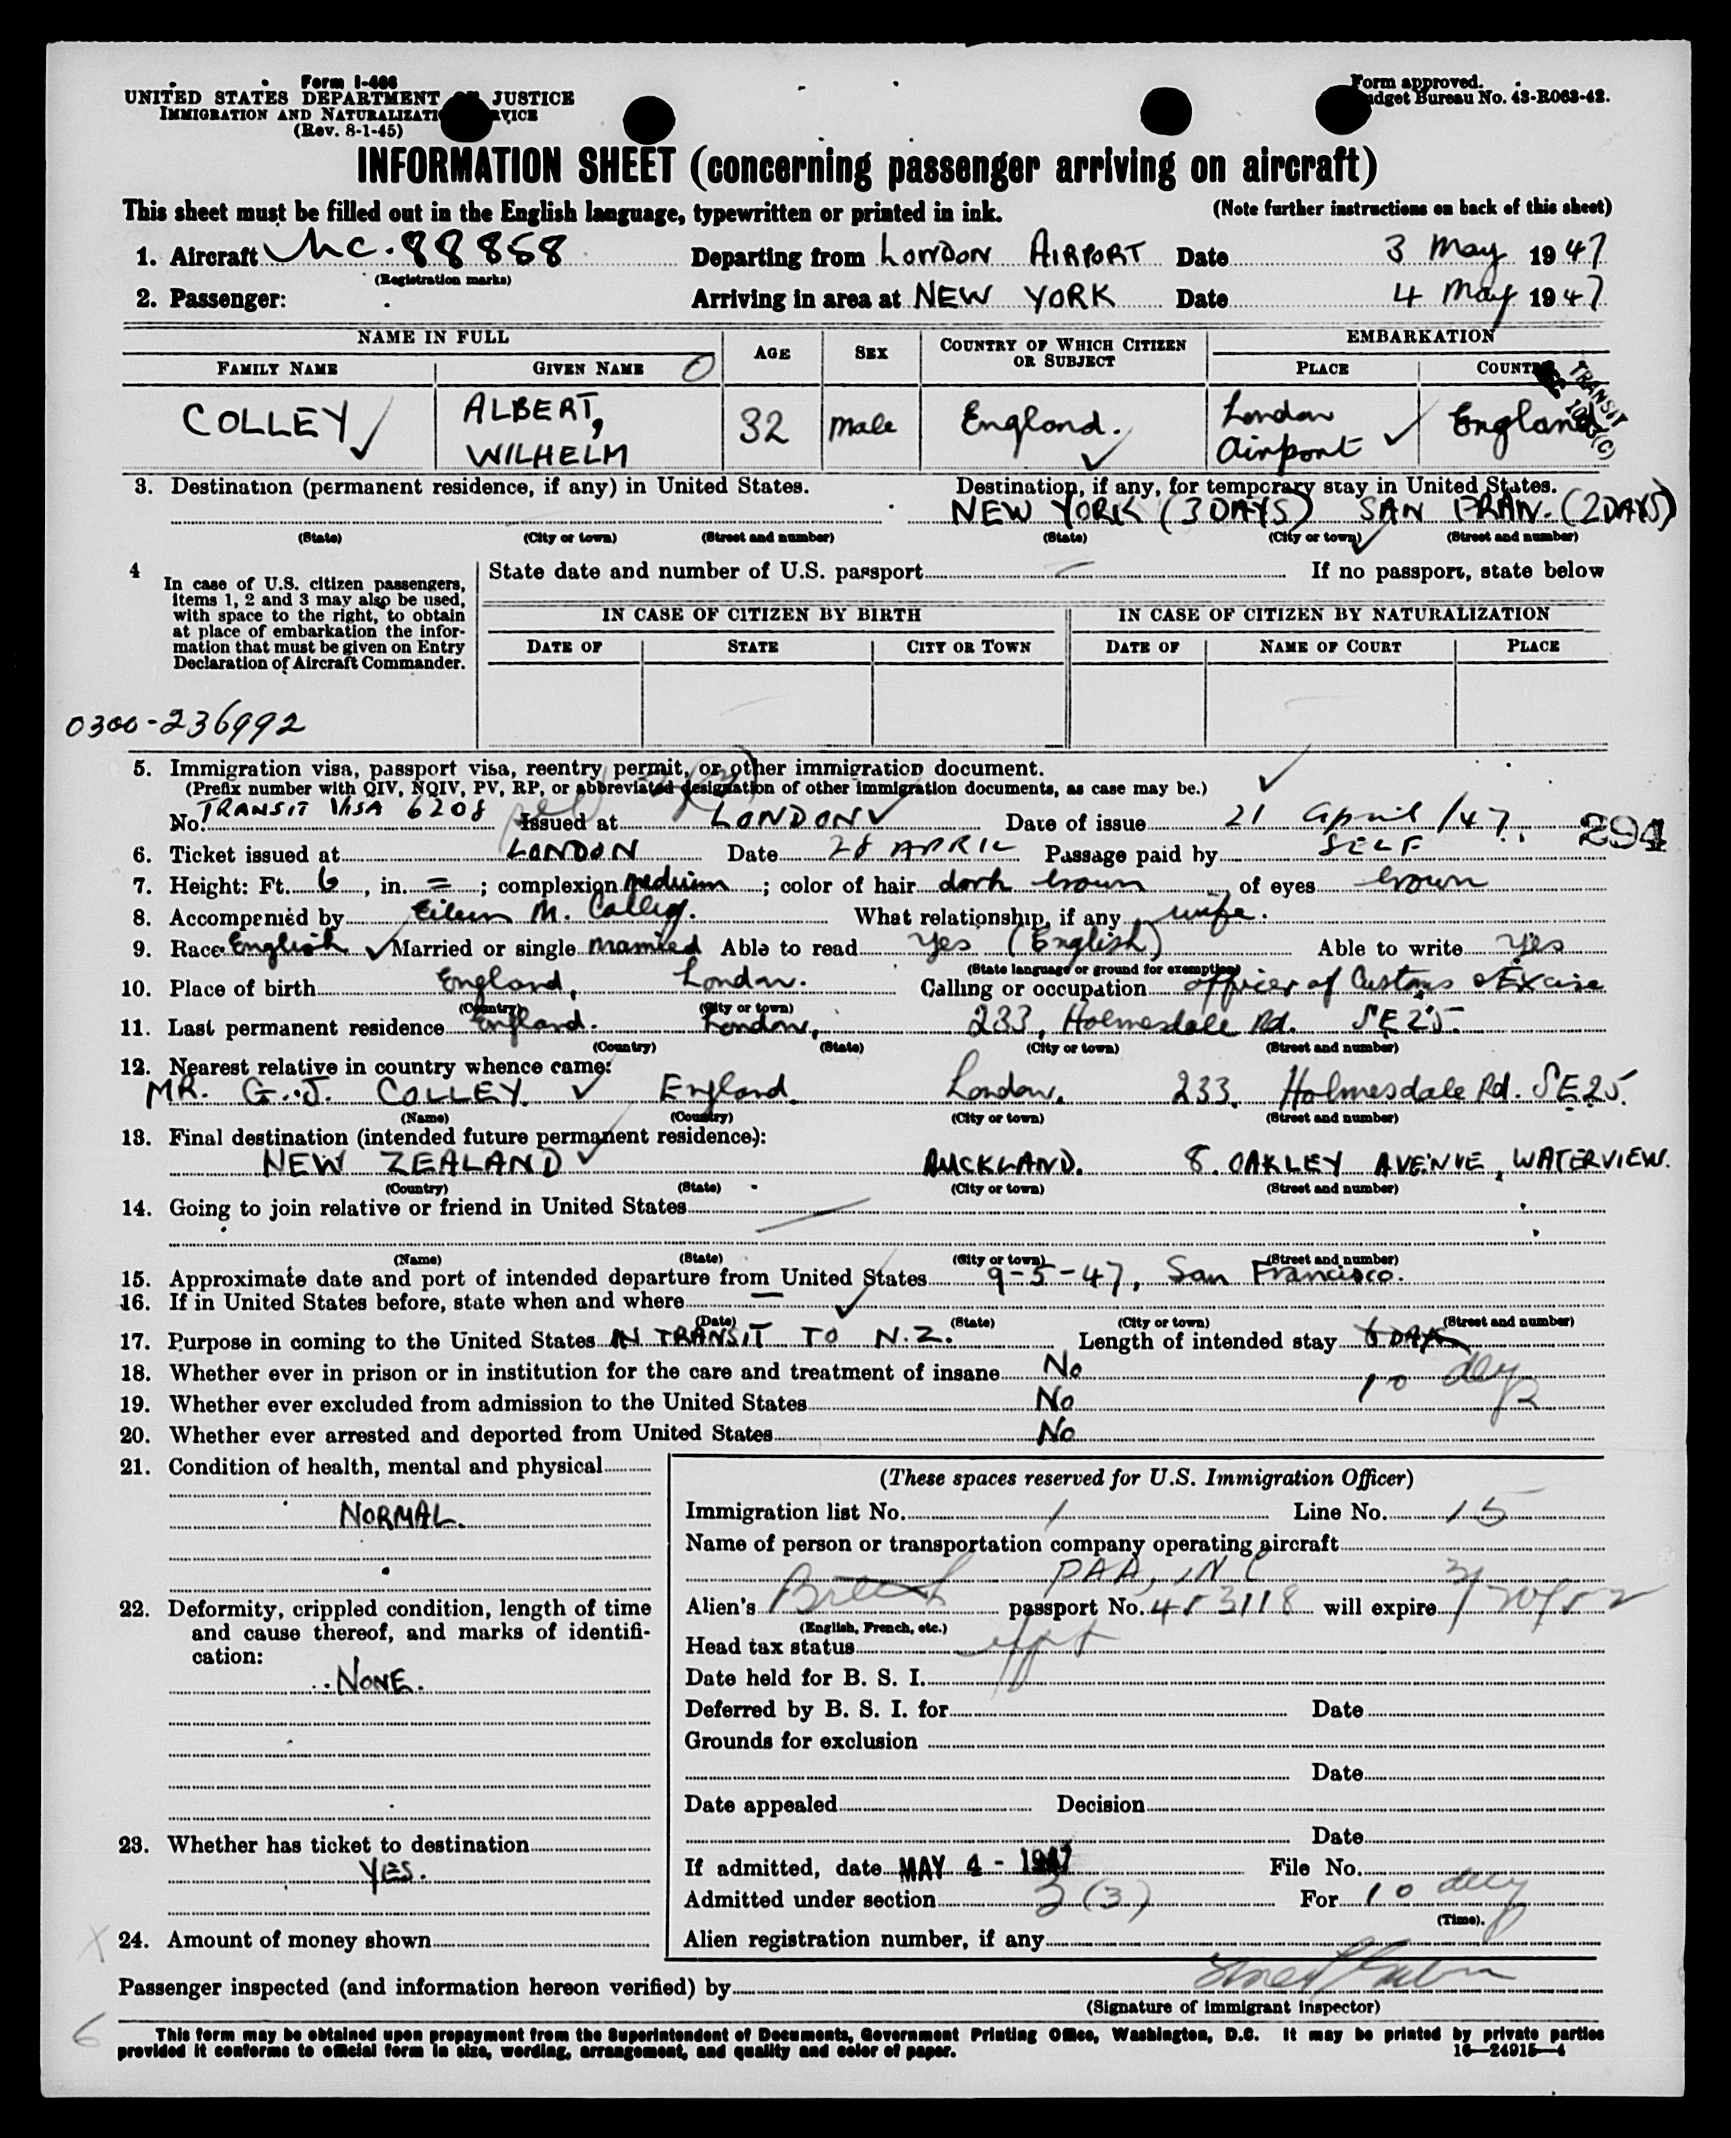 Form I-466
UNITED STATES DEPARTMENT OF JUSTICE
IMMIGRATION AND NATURALIZATION SERVICE
(Rev. 8-1-45)
Form approved.
Budget Bureau No. 43-R063-42.
INFORMATION SHEET (concerning passenger arriving on aircraft)
This sheet must be filled out in the English language, typewritten or printed in ink. (Note further instructions on back of this sheet)
1. Aircraft NC. 88858 Departing from LONDON AIRPORT Date 3 May 1947
(Registration marks)
2. Passenger: Arriving in area at NEW YORK Date 4 May 1947
NAME IN FULL AGE SEX COUNTRY OF WHICH CITIZEN OR SUBJECT EMBARKATION
FAMILY NAME GIVEN NAME PLACE COUNTRY
COLLEY ALBERT, WILHELM 32 Male England. London Airport England
TRANSIT
3. Destination (permanent residence, if any) in United States. Destination, if any, for temporary stay in United States.
NEW YORK (3 DAYS) SAN FRAN. (2 DAYS)
(State) (City or town) (Street and number) (State) (City or town) (Street and number)
4 In case of U.S. citizen passengers, items 1, 2 and 3 may also be used, with space to the right, to obtain at place of embarkation the information that must be given on Entry Declaration of Aircraft Commander.
State date and number of U.S. passport If no passport, state below
IN CASE OF CITIZEN BY BIRTH IN CASE OF CITIZEN BY NATURALIZATION
DATE OF STATE CITY OR TOWN DATE OF NAME OF COURT PLACE
0300-236992
5. Immigration visa, passport visa, reentry permit, or other immigration document.
(Prefix number with QIV, NQIV, PV, RP, or abbreviated designation of other immigration documents, as case may be.)
No. TRANSIT VISA 6208 Issued at LONDON Date of issue 21 April /47.
294
6. Ticket issued at LONDON Date 28 APRIL Passage paid by SELF
7. Height: Ft. 6, in. =; complexion medium; color of hair dark brown, of eyes brown
8. Accompanied by Eileen M. Colley. What relationship, if any wife.
9. Race English Married or single married Able to read Yes (English) Able to write Yes
(State language or ground for exemption)
10. Place of birth England, London. Calling or occupation Officer of Customs & Excise
(Country) (City or town)
11. Last permanent residence England. London, 233, Holmesdale Rd. SE25.
(Country) (State) (City or town) (Street and number)
12. Nearest relative in country whence came:
MR. G. J. COLLEY. England. London. 233. Holmesdale Rd. SE25.
(Name) (Country) (City or town) (Street and number)
13. Final destination (intended future permanent residence):
NEW ZEALAND AUCKLAND. 8. OAKLEY AVENUE, WATERVIEW.
(Country) (State) (City or town) (Street and number)
14. Going to join relative or friend in United States
(Name) (State) (City or town) (Street and number)
15. Approximate date and port of intended departure from United States 9-5-47, San Francisco.
16. If in United States before, state when and where —
(Date) (State) (City or town) (Street and number)
17. Purpose in coming to the United States IN TRANSIT TO N.Z. Length of intended stay 6 DAYS
10 days
18. Whether ever in prison or in institution for the care and treatment of insane No
19. Whether ever excluded from admission to the United States No
20. Whether ever arrested and deported from United States No
21. Condition of health, mental and physical
NORMAL.
22. Deformity, crippled condition, length of time and cause thereof, and marks of identification:
NONE.
23. Whether has ticket to destination
YES.
24. Amount of money shown
(These spaces reserved for U.S. Immigration Officer)
Immigration list No. 1 Line No. 15
Name of person or transportation company operating aircraft
PAA, INC
Alien's British passport No. 453118 will expire
(English, French, etc.)
Head tax status
Date held for B. S. I.
Deferred by B. S. I. for Date
Grounds for exclusion
Date
Date appealed Decision
Date
If admitted, date MAY 4 - 1947 File No.
Admitted under section 3 (3) For 10 days
(Time).
Alien registration number, if any
Passenger inspected (and information hereon verified) by
(Signature of immigrant inspector)
6
This form may be obtained upon prepayment from the Superintendent of Documents, Government Printing Office, Washington, D.C. It may be printed by private parties
provided it conforms to official form in size, wording, arrangement, and quality and color of paper.
16—24915-4